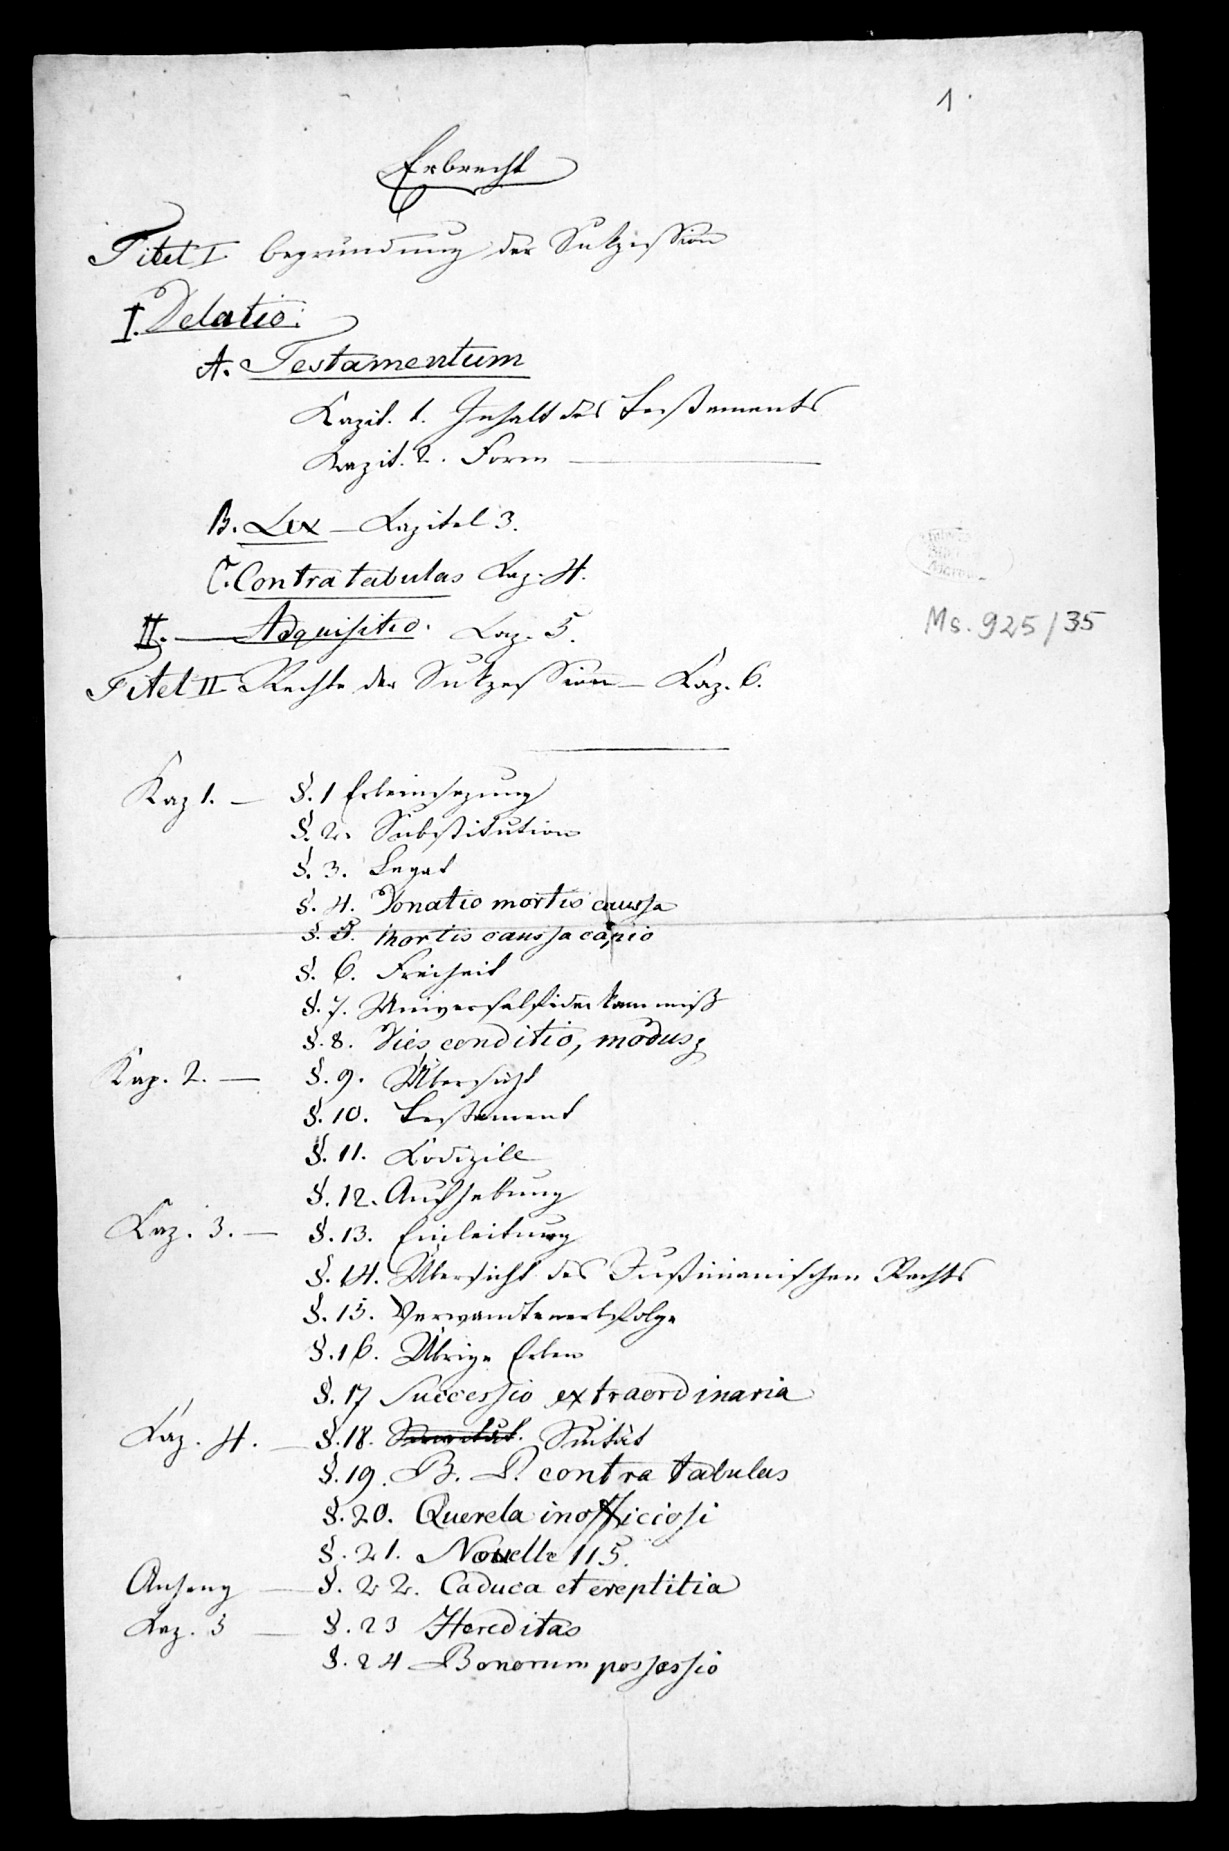 1.
Erbrecht
Titel I begründung der Sukzession
I. Delatio:
A. Testamentum
Kapit. 1. Inhalt des Testaments
Kapit. 2. Form ———
B. Lex — Kapitel 3.
C. Contra tabulas Kap. 4.
II. — Adquisitio. Kap. 5.
Ms. 925/35
Titel II Rechte der Sukzession — Kap. 6.
Kap 1. — §. 1 Erbeinsezung
§. 2. Substitution
§. 3. Legat
§. 4. Donatio mortis caussa
§. 5. Mortis caussa capio
§. 6. Freiheit
§. 7. Universalfideikommiß
§. 8. Dies conditio, modus,
Kap. 2. — §. 9. Übersicht
§. 10. Testament
§. 11. Kodizile
§. 12. Aufhebung
Kap. 3. — §. 13. Einleitung
§. 14. Übersicht des Justinianischen Rechts
§. 15. Verwandtenerbfolge
§. 16. Übrige Erben
§. 17 Successio extraordinaria
Kap. 4. — §. 18. Suität
§. 19. B. P. contra tabulas
§. 20. Querela inofficiosi
§. 21. Novelle 115.
Anhang — §. 22. Caduca et ereptitia
Kap. 5 — §. 23 Hereditas
§. 24 Bonorum possessio